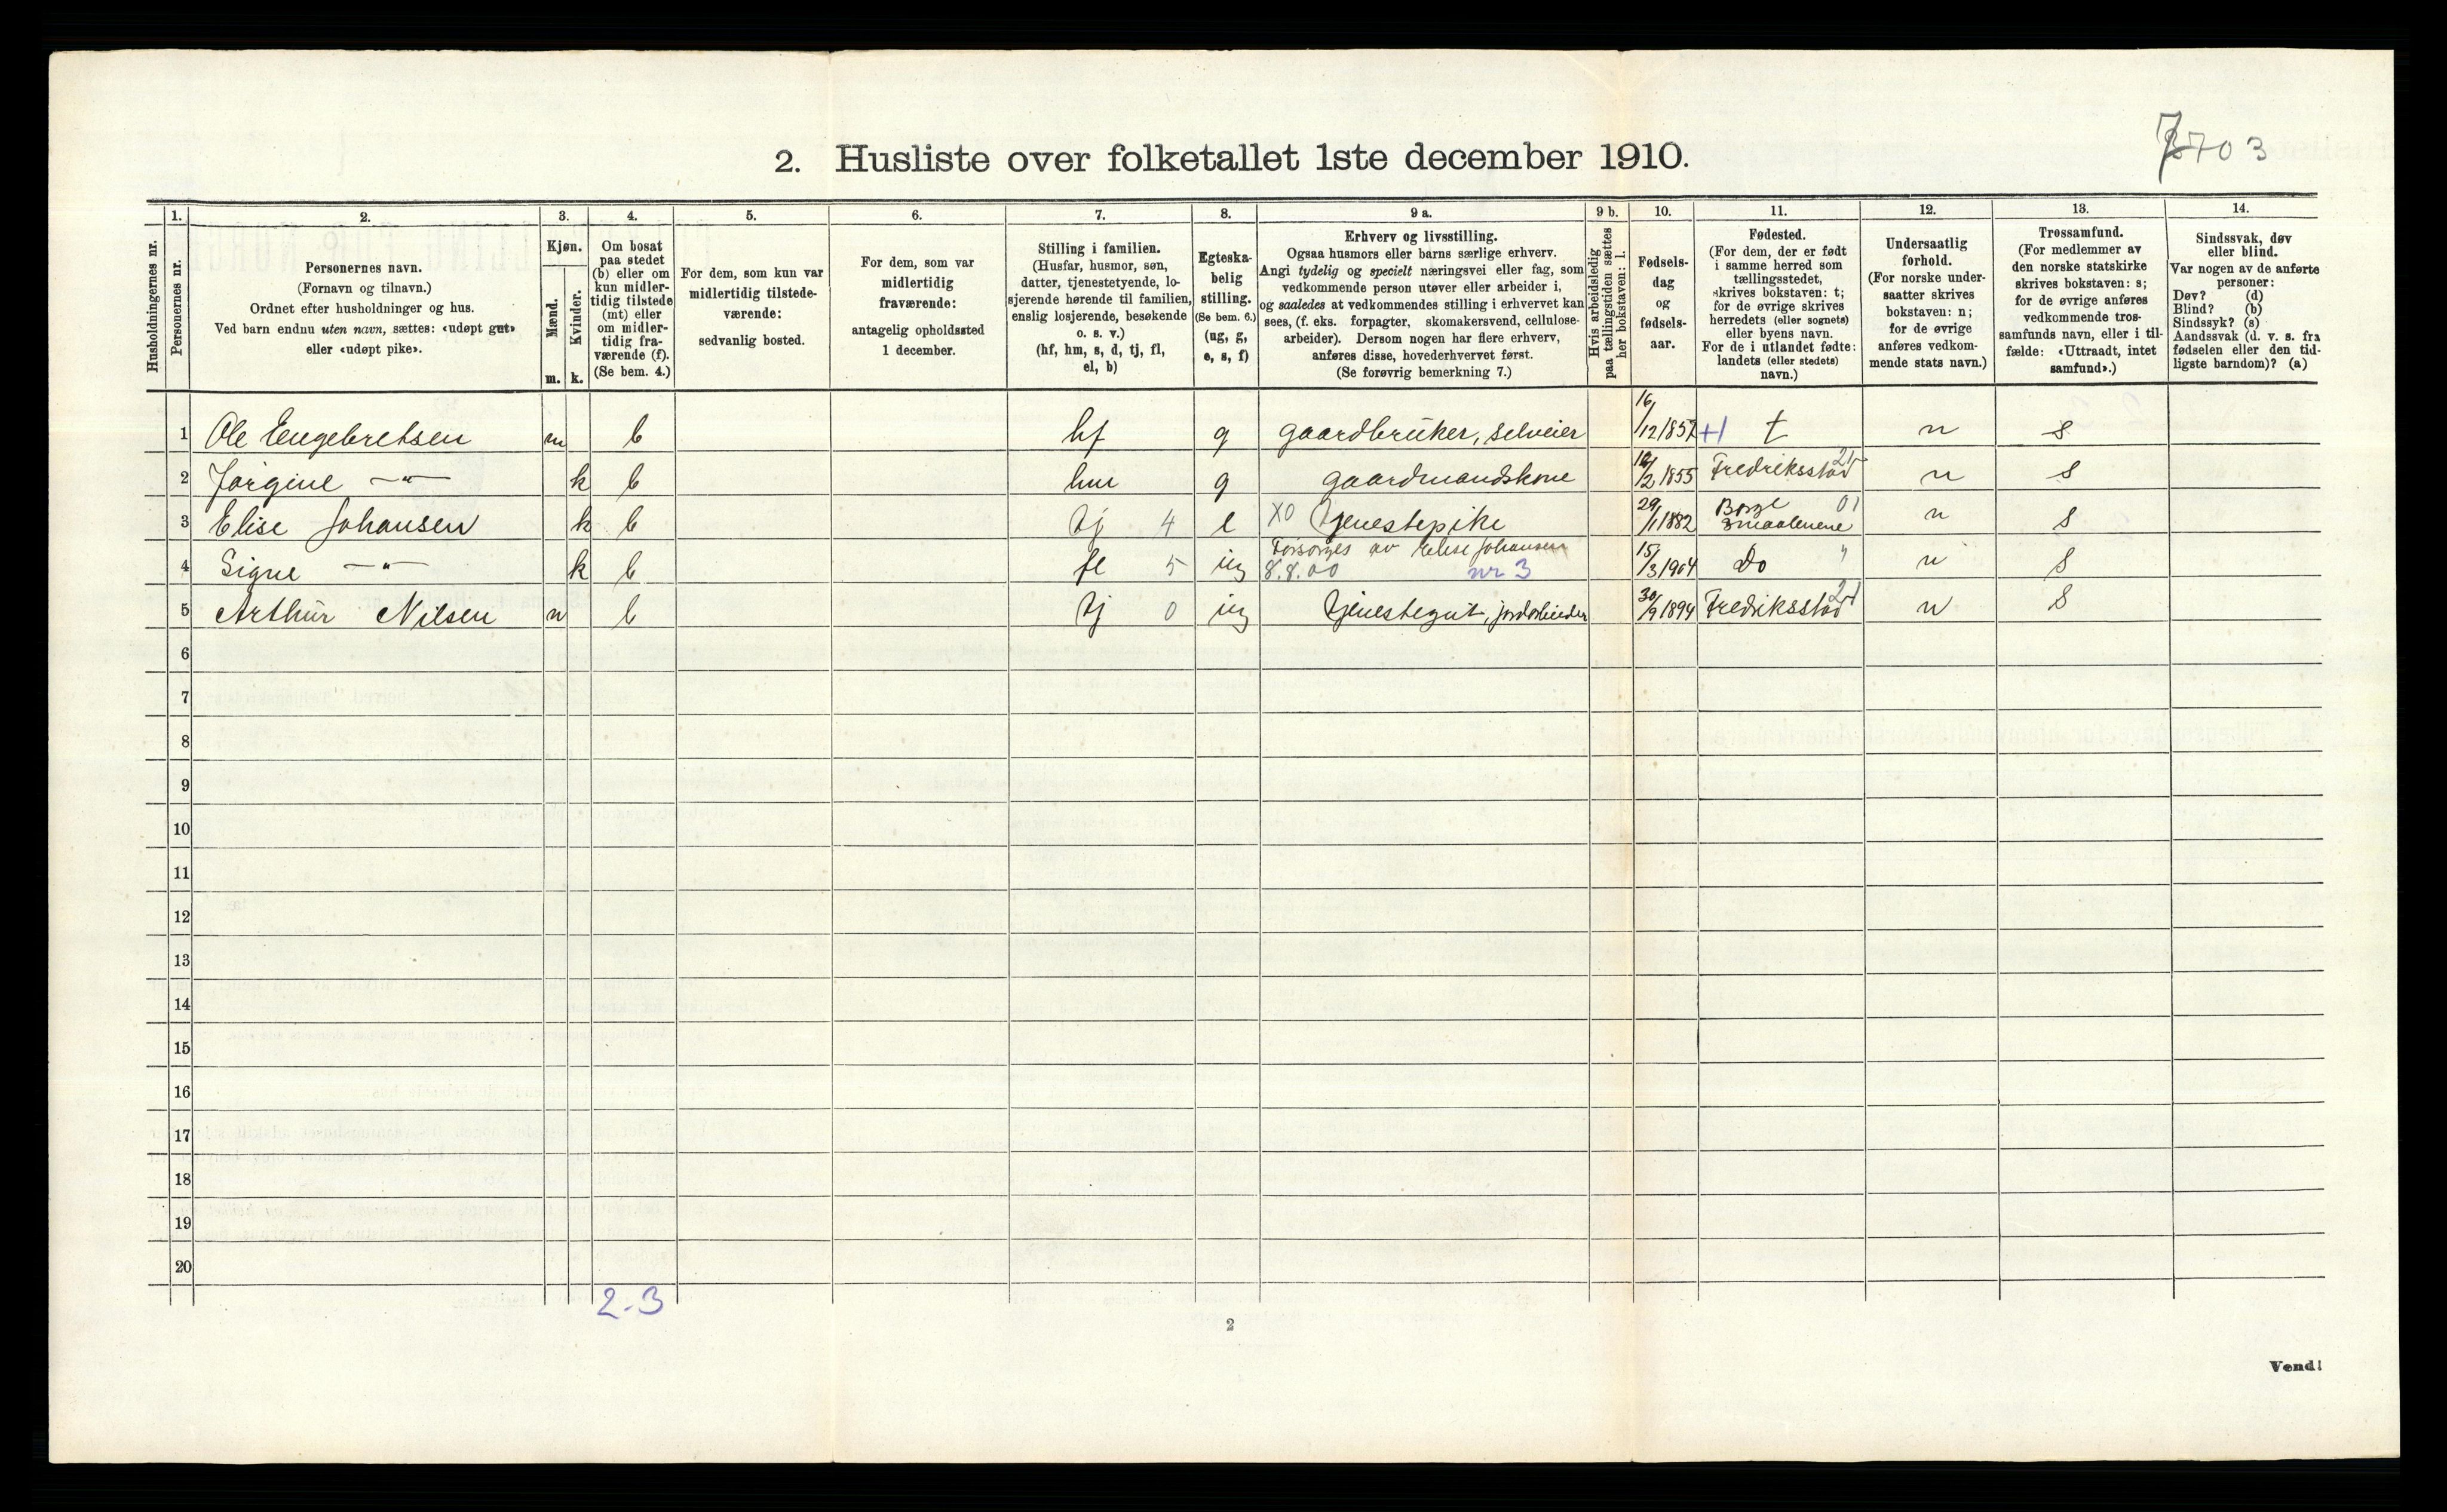 703
2. Husliste over folketallet 1ste december 1910.
Husholdningernes nr.
1.
Personernes nr.
2.
Personernes navn.
(Fornavn og tilnavn.)
Ordnet efter husholdninger og hus.
Ved barn endnu uten navn, sættes: «udøpt gut»
eller «udøpt pike».
3.
Kjøn.
Mænd.
m.
Kvinder.
k.
4.
Om bosat
paa stedet
(b) eller om
kun midler-
tidig tilstede
(mt) eller
om midler-
tidig fra-
værende (f).
(Se bem. 4.)
5.
For dem, som kun var
midlertidig tilstede-
værende:
sedvanlig bosted.
6.
For dem, som var
midlertidig
fraværende:
antagelig opholdssted
1 december.
7.
Stilling i familien.
(Husfar, husmor, søn,
datter, tjenestetyende, lo-
sjerende hørende til familien,
enslig losjerende, besøkende
o. s. v.)
(hf, hm, s, d, tj, fl,
el, b)
8.
Egteska-
belig
stilling.
(Se bem. 6.)
(ug, g,
e, s, f)
9 a.
Erhverv og livsstilling.
Ogsaa husmors eller barns særlige erhverv.
Angi tydelig og specielt næringsvei eller fag, som
vedkommende person utøver eller arbeider i,
og saaledes at vedkommendes stilling i erhvervet kan
sees, (f. eks. forpagter, skomakersvend, cellulose-
arbeider). Dersom nogen har flere erhverv,
anføres disse, hovederhvervet først.
(Se forøvrig bemerkning 7.)
9 b.
Hvis arbeidsledig
paa tællingstiden sættes
her bokstaven: l.
10.
Fødsels-
dag
og
fødsels-
aar.
11.
Fødested.
(For dem, der er født
i samme herred som
tællingsstedet,
skrives bokstaven: t;
for de øvrige skrives
herredets (eller sognets)
eller byens navn.
For de i utlandet fødte:
landets (eller stedets)
navn.)
12.
Undersaatlig
forhold.
(For norske under-
saatter skrives
bokstaven: n;
for de øvrige
anføres vedkom-
mende stats navn.)
13.
Trossamfund.
(For medlemmer av
den norske statskirke
skrives bokstaven: s;
for de øvrige anføres
vedkommende tros-
samfunds navn, eller i til-
fælde: «Uttraadt, intet
samfund».)
14.
Sindssvak, døv
eller blind.
Var nogen av de anførte
personer:
Døv? (d)
Blind? (b)
Sindssyk? (s)
Aandssvak (d. v. s. fra
fødselen eller den tid-
ligste barndom)? (a)
1 Ole Engebretsen m b hf g gaardbruker, selveier 16/12 1857 +1 t n s
2 Jørgine —"— k b hm g gaardmandskone 1855 Fredriksstad 21 n s
3 Elise Johansen k b tj 4 e XO Tjenestepike 29/1 1882 Borge Smaalenene 01 n s
4 Signe —"— k b fl 5 ug Forsørges av Elise Johansen 8.8.00 nr 3 15/3 1904 Do " n s
5 Arthur Nilsen m b tj 0 ug tjenestegut, jordarbeider 30/9 1894 Fredriksstad 21 n s
6
7
8
9
10
11
12
13
14
15
16
17
18
19
20
2-3
2
Vend!